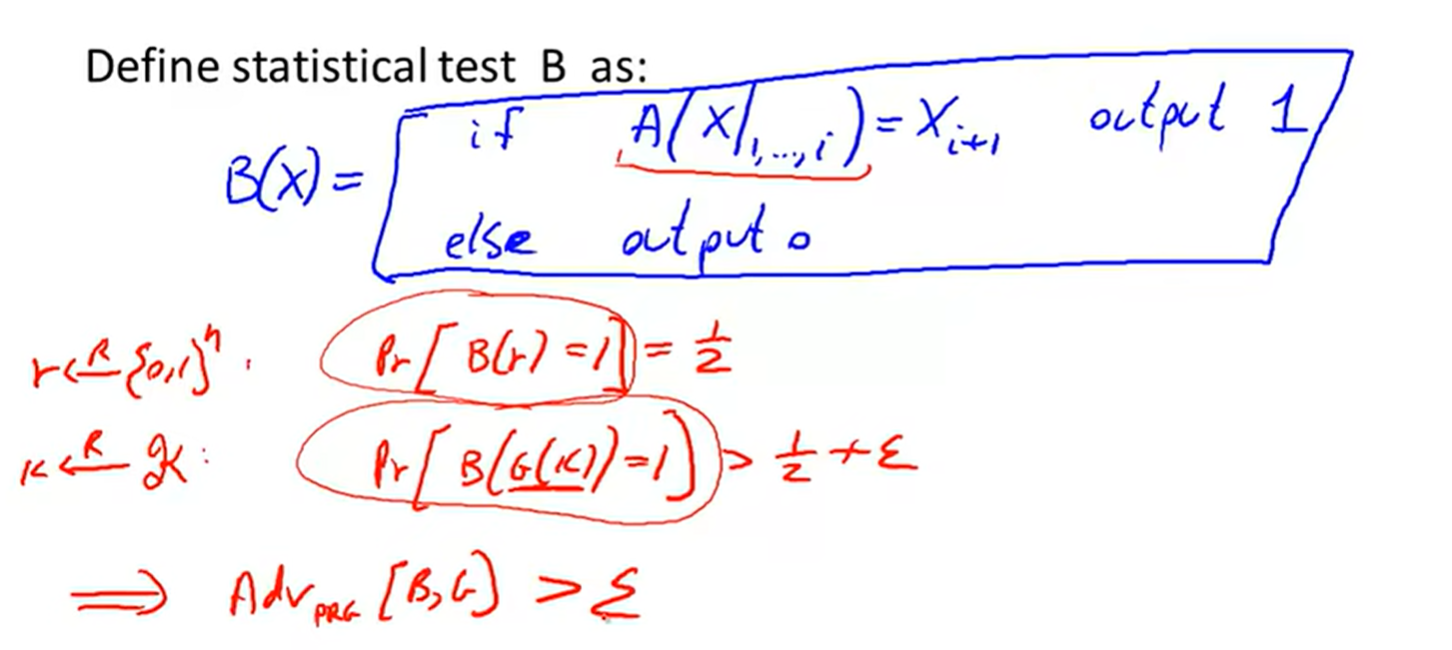 Define statistical test B as:
if A(X|₁,...,ᵢ) = Xᵢ₊₁ output 1
B(X) =
else output 0
r ←ᴿ {0,1}ⁿ : Pr[B(r) = 1] = 1/2
K ←ᴿ 𝒦 : Pr[B(G(K)) = 1] > 1/2 + ε
⟹ Adv_PRG [B,G] > ε